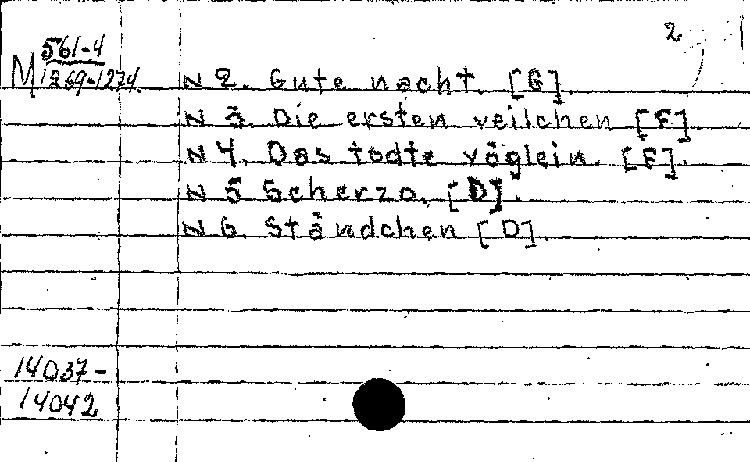 2
561-4
M 1269-1274
N 2. Gute nacht. [G].
N 3. Die ersten veilchen [F].
N 4. Das todte vöglein. [F].
N 5 Scherzo. [D].
N 6. Ständchen [D].
14037-
14042